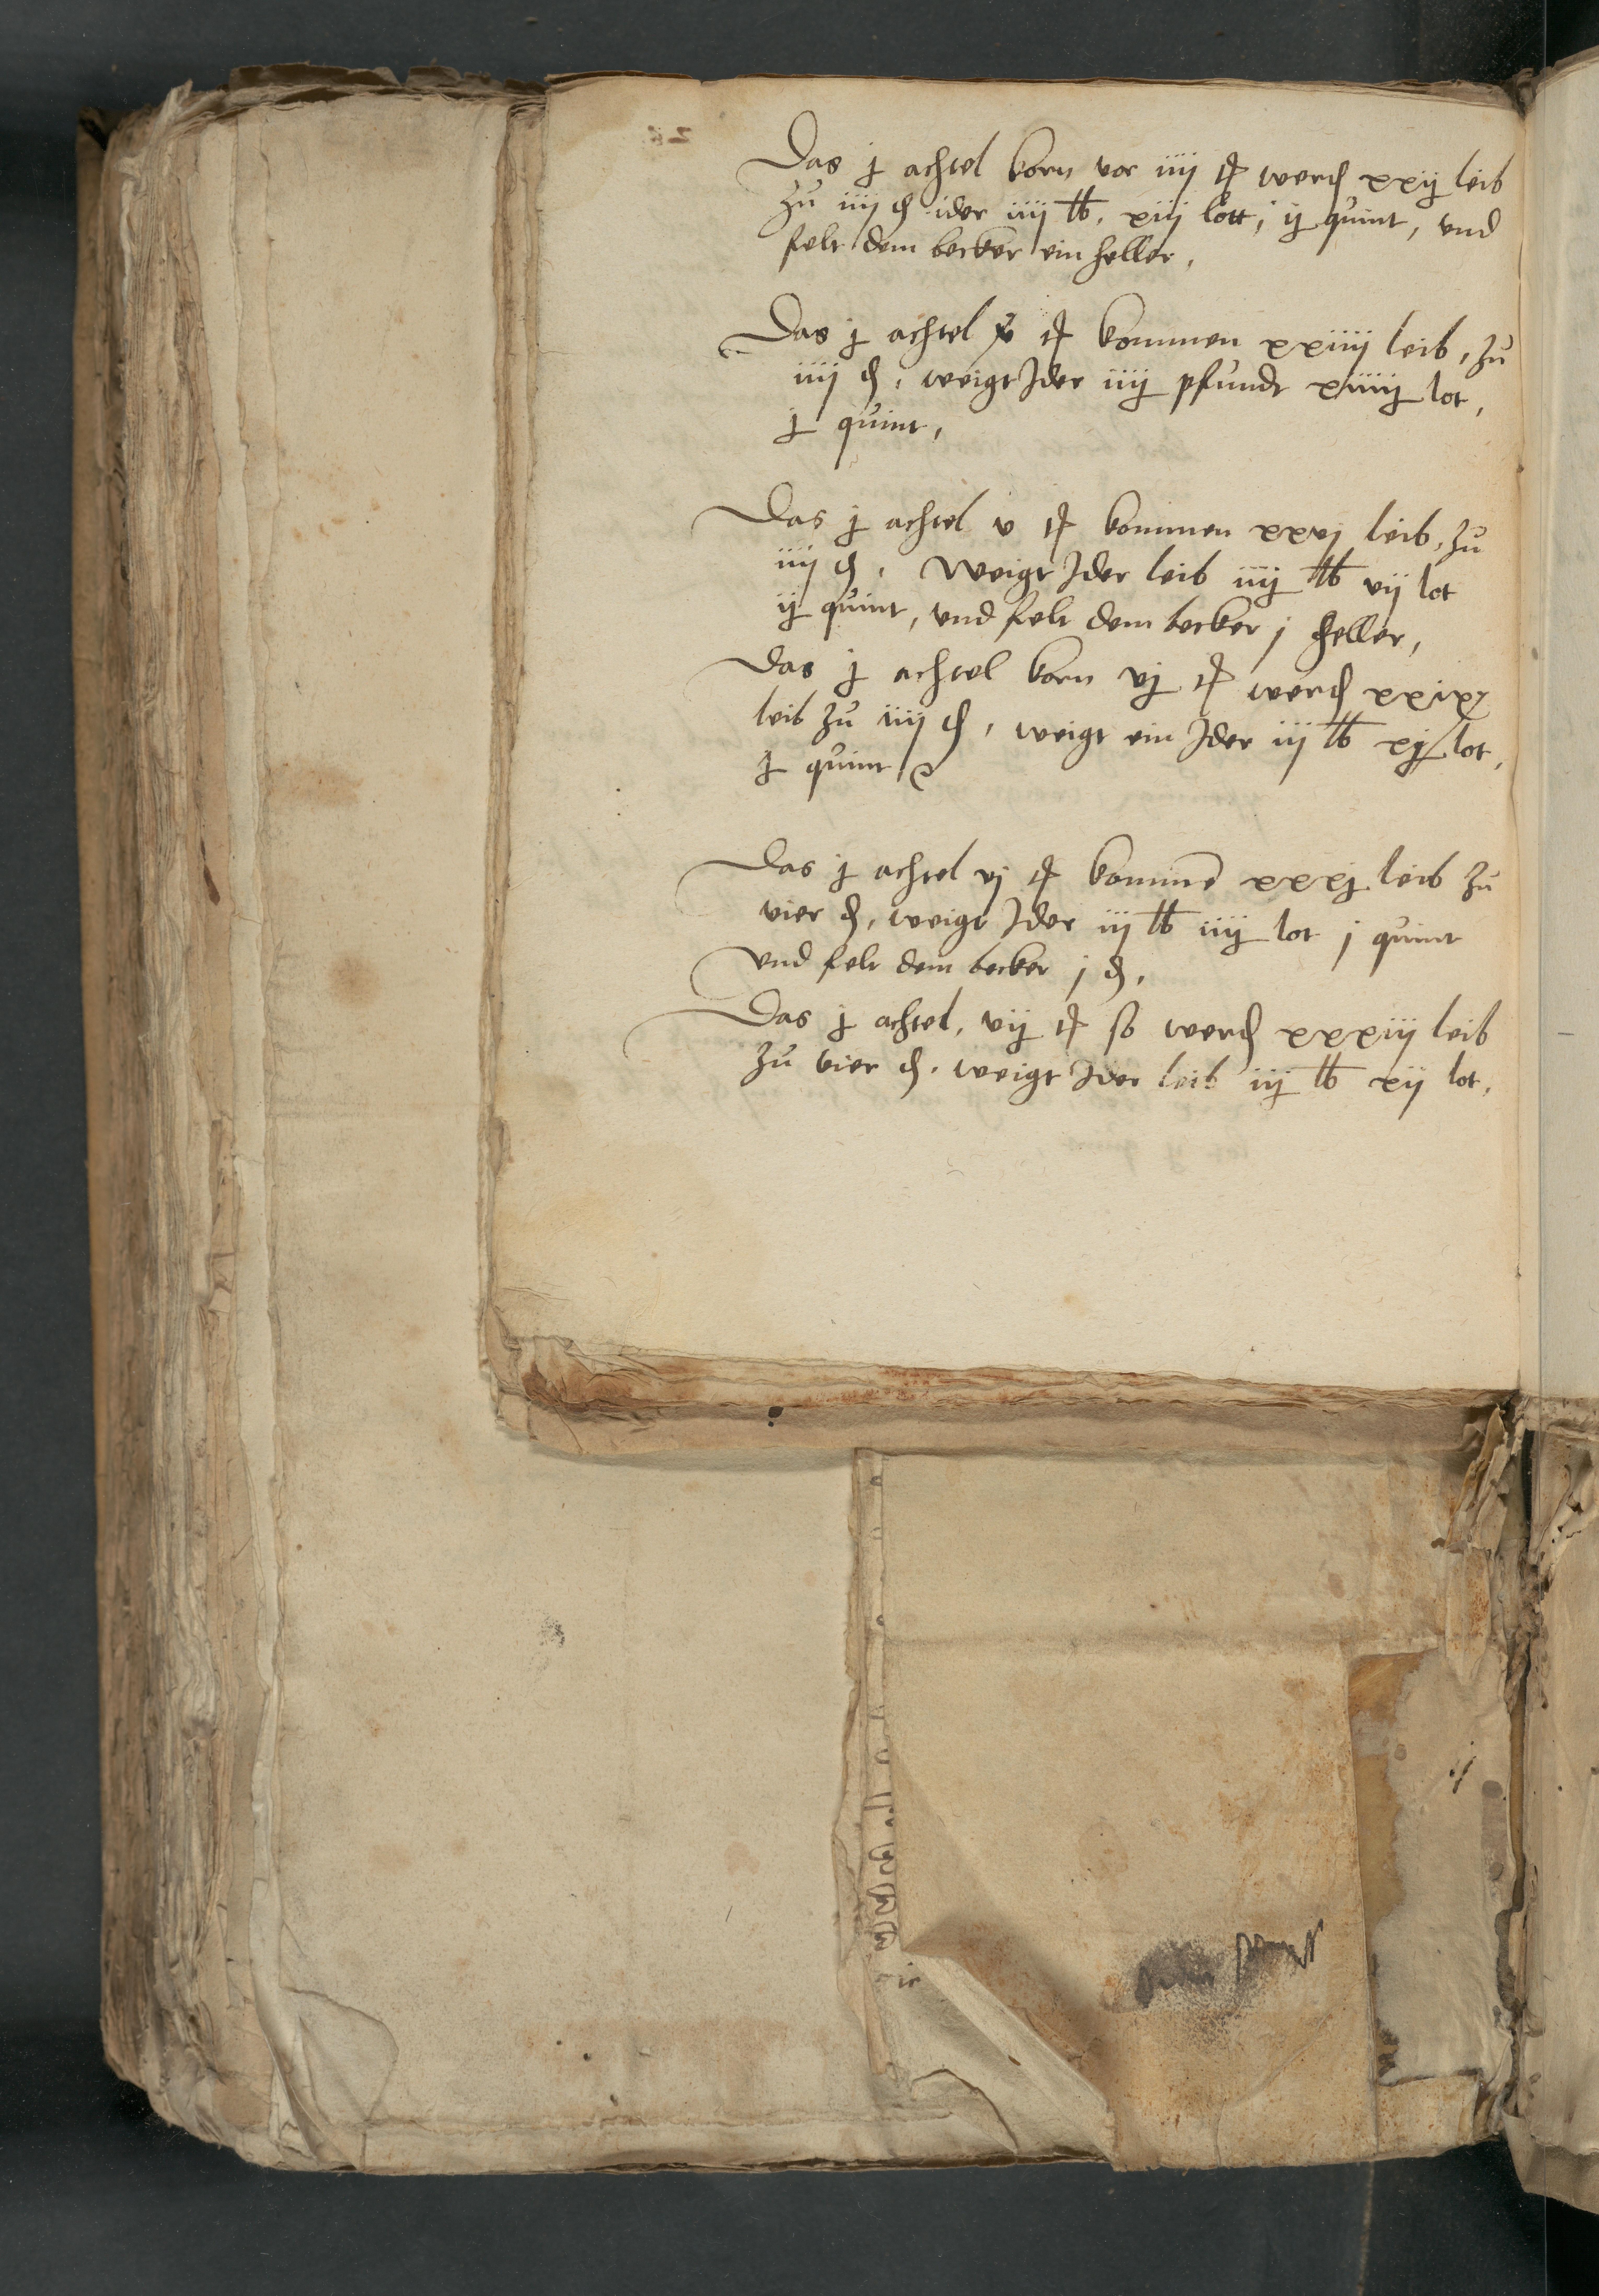 Das j achtel korn vor iiij tß werdẽ xxij leib
zu iiij ₰ ider iiij lb, xiij lott, ij quint, und
felt dem becker ein heller,
Das j achtel v tß kommen xxiiij leib, zu
iiij ₰, weigt Jder iiij pfundt xiiiij lot,
j quint,
Das j achtel v tß kommen xxvj leib, zu
iiij ₰, Weigt Jder leib iiij lb vij lot
ij quint, vnd felt dem becker j heller,
Das j achtel korn vj tß werdẽ xxix
leib zu iiij ₰, weigt ein Jder iij lb xj lot,
j quint
Das j achtel vj tß kommẽ xxxj leib zu
vier ₰, weigt Jder iij lb iiij lot j quint
vnd felt dem becker j ₰,
Das j achtel, vij tß so werdẽ xxxiij leib
zu vier ₰, weigt Jder leib iij lb xij lot,